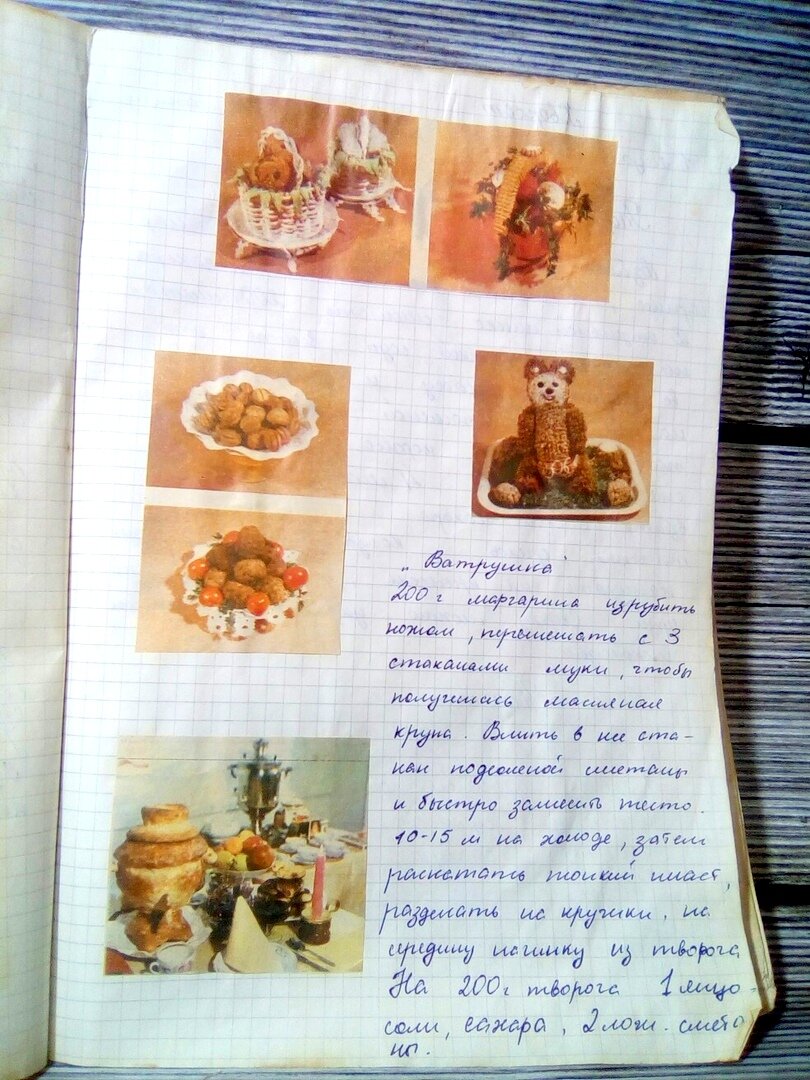 „Ватрушка"
200 г маргарина изрубить
ножом, перемешать с 3
стаканами муки, чтобы
получилась масляная
крупа. Влить в нее ста-
кан подсоленой сметаны
и быстро замесить тесто.
10-15 м на холоде, затем
раскатать тонкий пласт,
разделать на кружки, на
середину начинку из творога
На 200 г творога 1 яицо
соли, сахара, 2 лож. смета
ны.